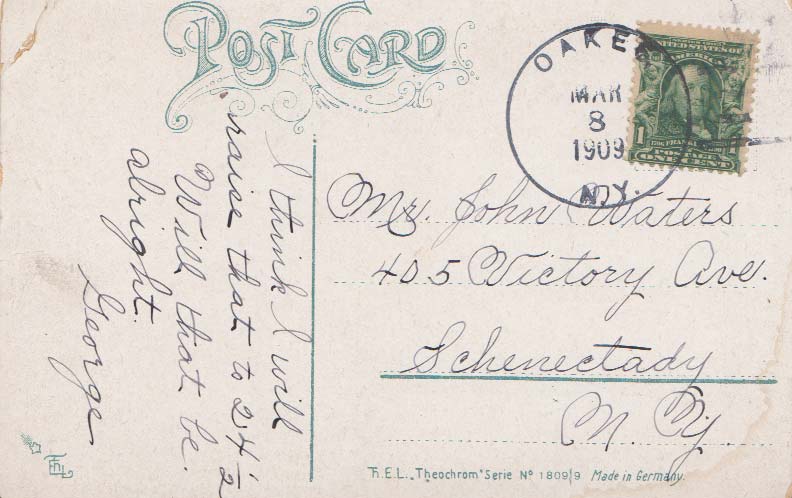 POST CARD
OAKES
MAR
8
1909
N.Y.
UNITED STATES OF
AMERICA
1 1
FRANKLIN
POSTAGE
ONE CENT
I think I will
raise that to 24 1/2
Will that be.
alright.
George
Mr. John Waters
405 Victory Ave.
Schenectady
N. Y.
Th.E.L. „Theochrom" Serie Nº 1809/9 Made in Germany.
ThEL